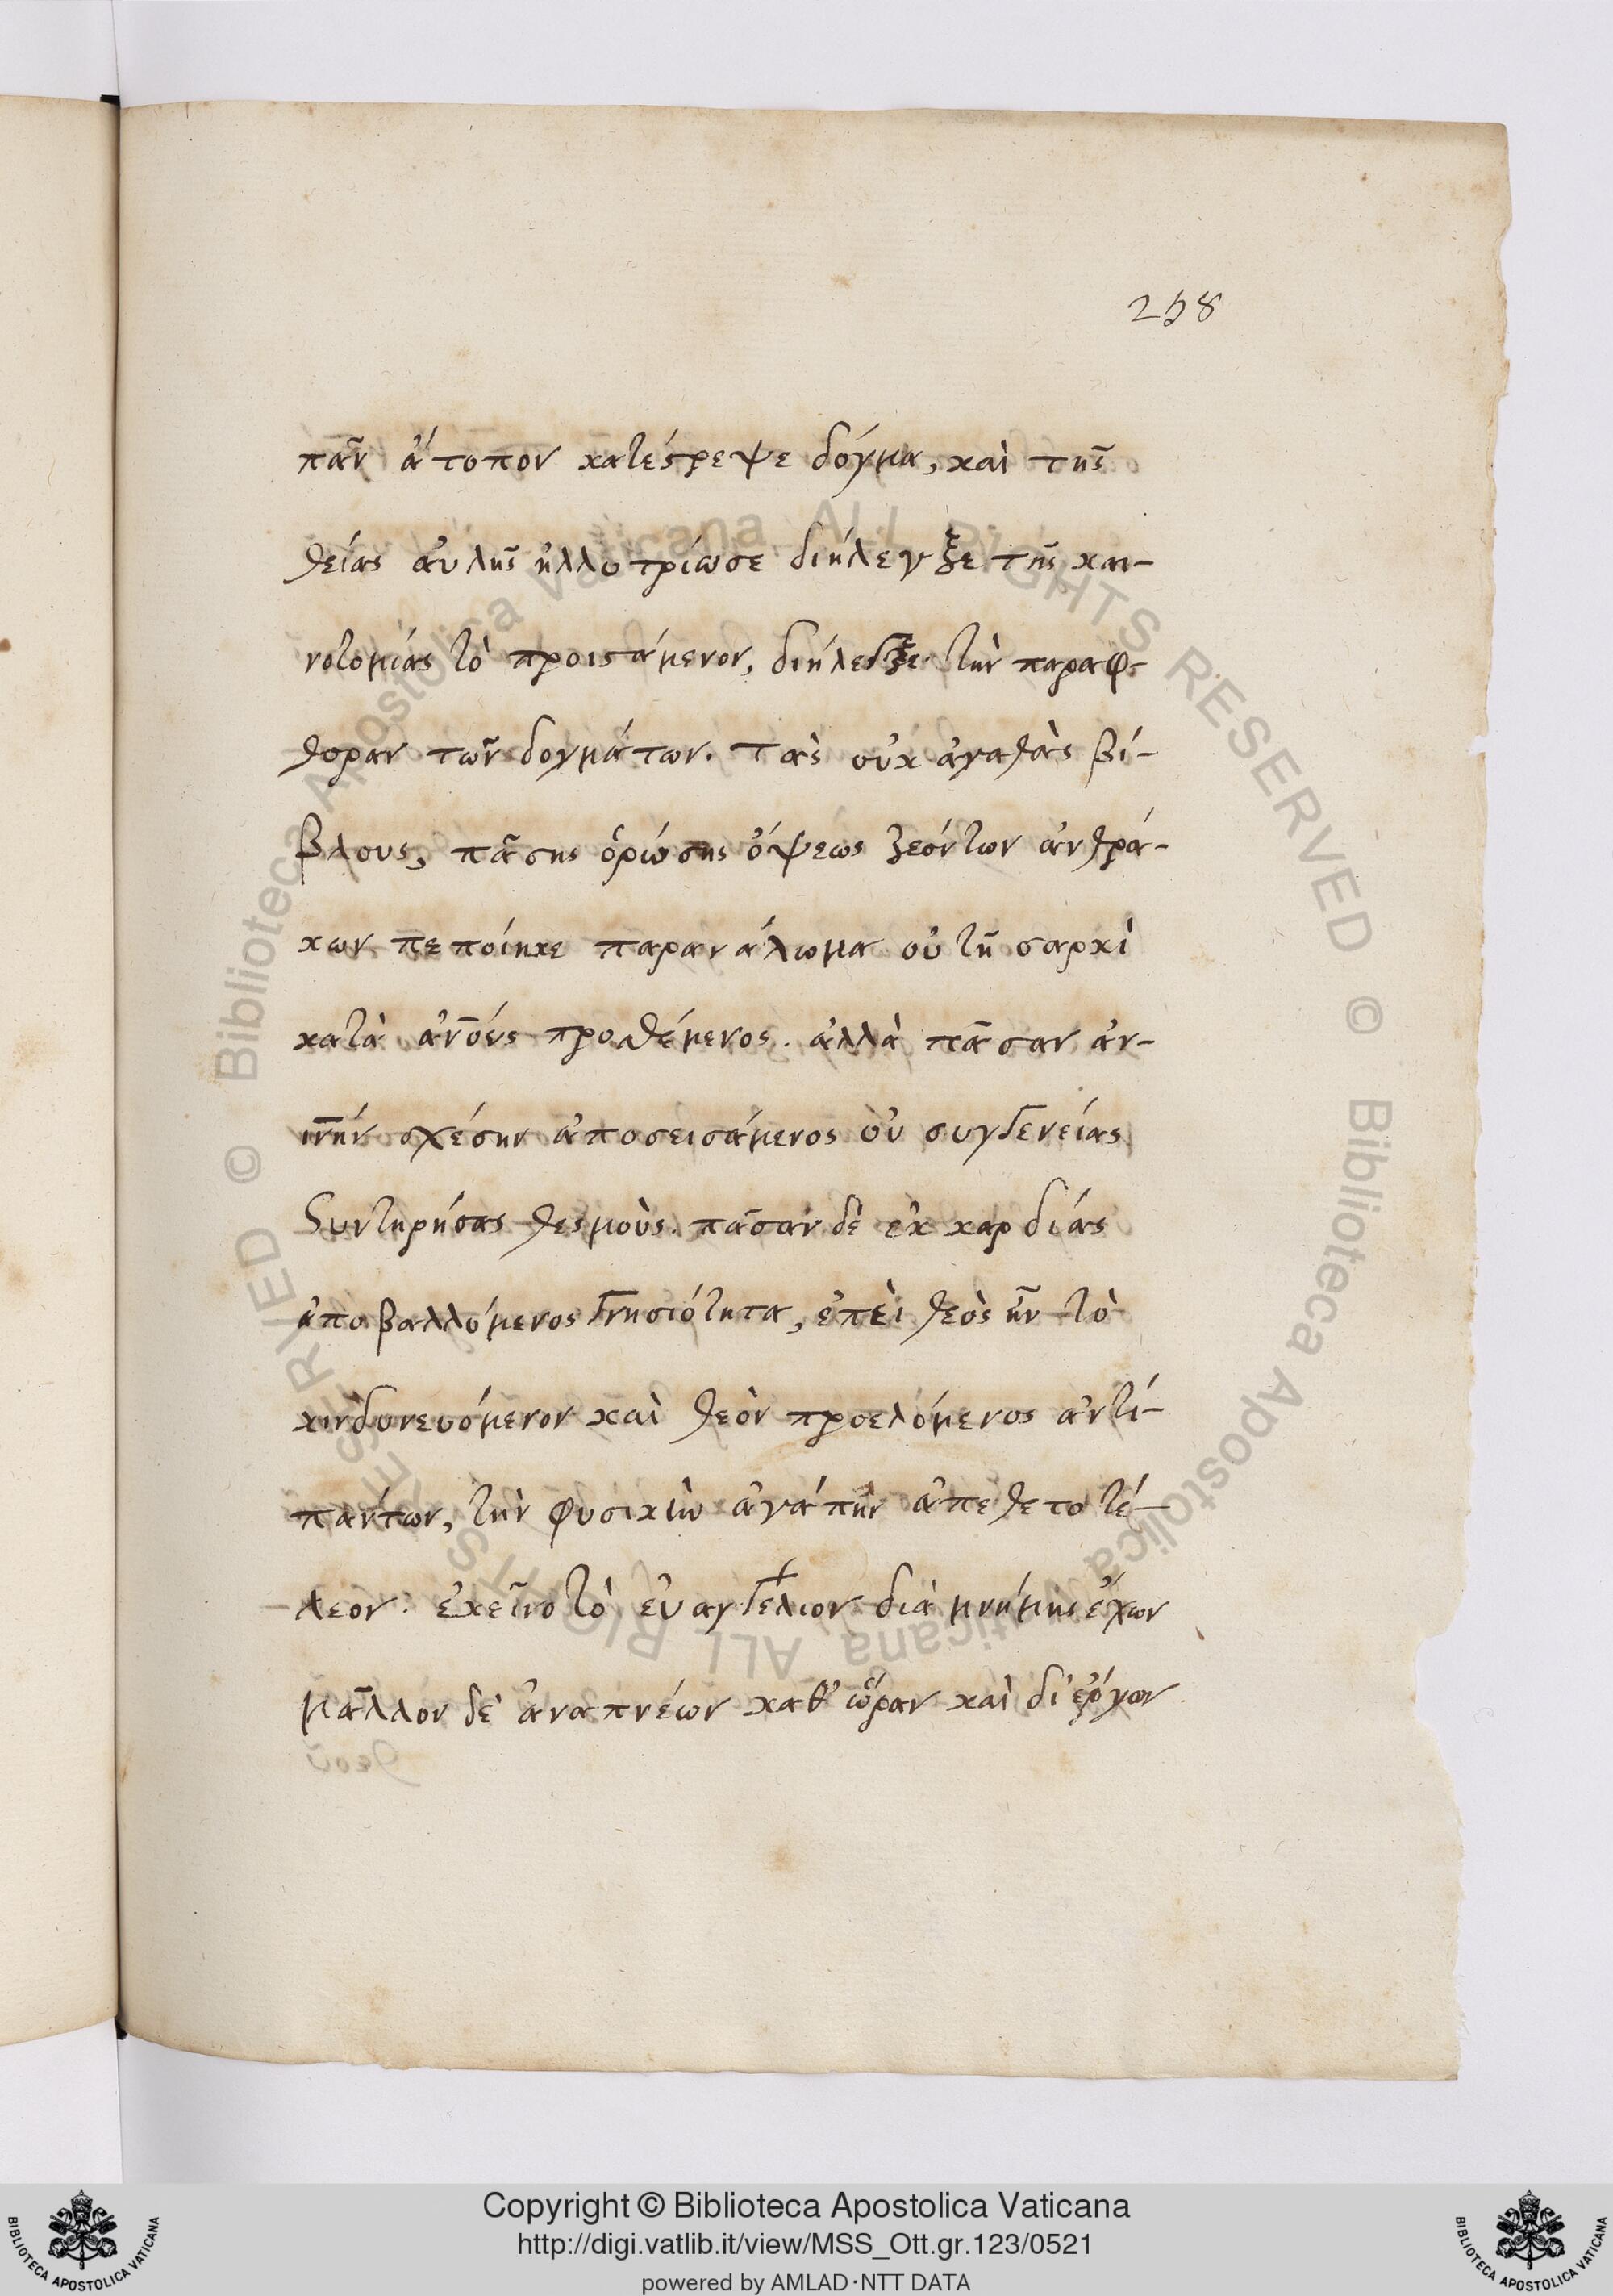 258
πᾶν ἄτοπον κατέστρεψε δόγμα, καὶ τῆς
θείας αὐλῆς ἠλλοτρίωσε διήλεγξε τῆς και-
νοτομίας τὸ προιστάμενον, διήλεγξε τὴν παραφ-
θοραν τῶν δογμάτων. Τὰς οὐκ ἀγαθὰς βί-
βλους, πάσης ὁρώσης ὄψεως ζεόντων ἀνθρά-
κων πεποίηκε παρανάλωμα οὐ τῇ σαρκὶ
κατὰ ἀν̅ο̅υς προσθέμενος. ἀλλὰ πᾶσαν ἀν-
ι̅νην σχέσην ἀποσεισάμενος οὐ συγγενείας
Συντηρήσας θεσμοὺς. πᾶσαν δὲ ἐκ καρδίας
ἀποβαλλόμενος γνησιότητα, ἐπεὶ θεὸς ἦν τὸ
κινδυνευόμενον καὶ θεὸν προελόμενος ἀντί-
πάντων, τὴν φυσικὴν ἀγάπην ἀπεθετο τέ-
λεον. ἐκεῖνο τὸ εὐαγγέλιον διὰ μνήμης ἔχων
μᾶλλον δὲ ἀναπνέων καθ' ὥραν καὶ δι' ἔργων
© Biblioteca Apostolica Vaticana ALL RIGHTS RESERVED © Biblioteca Apostolica Vaticana ALL RIGHTS RESERVED
Copyright © Biblioteca Apostolica Vaticana
http://digi.vatlib.it/view/MSS_Ott.gr.123/0521
powered by AMLAD·NTT DATA
BIBLIOTECA APOSTOLICA VATICANA
BIBLIOTECA APOSTOLICA VATICANA